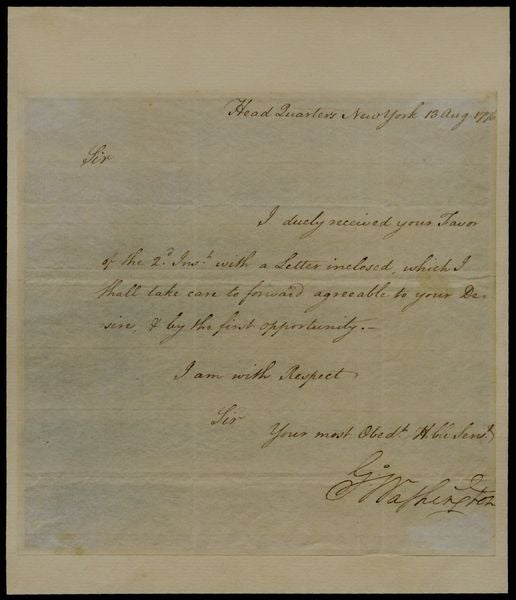 Head Quarters New York 13 Aug. 1776
Sir
I duely received your Favor
of the 2d. Inst. with a Letter inclosed, which I
shall take care to forward agreeable to your De-
sire, & by the first opportunity.—
I am with Respect
Sir
Your most Obedt. Hble Servt.
Go. Washington